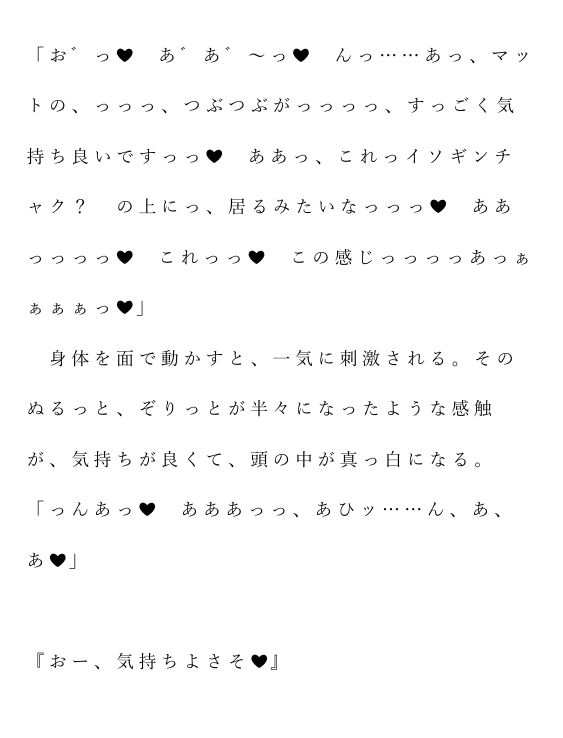 「お゛っ♥　あ゛あ゛～っ♥　んっ……あっ、マッ
トの、っっっ、つぶつぶがっっっっ、すっごく気
持ち良いですっっ♥　ああっ、これっイソギンチ
ャク？　の上にっ、居るみたいなっっっ♥　ああ
っっっっ♥　これっっ♥　この感じっっっっあっぁ
ぁぁぁっ♥」
　身体を面で動かすと、一気に刺激される。その
ぬるっと、ぞりっとが半々になったような感触
が、気持ちが良くて、頭の中が真っ白になる。
「っんあっ♥　あああっっ、あひッ……ん、あ、
あ♥」
『おー、気持ちよさそ♥』